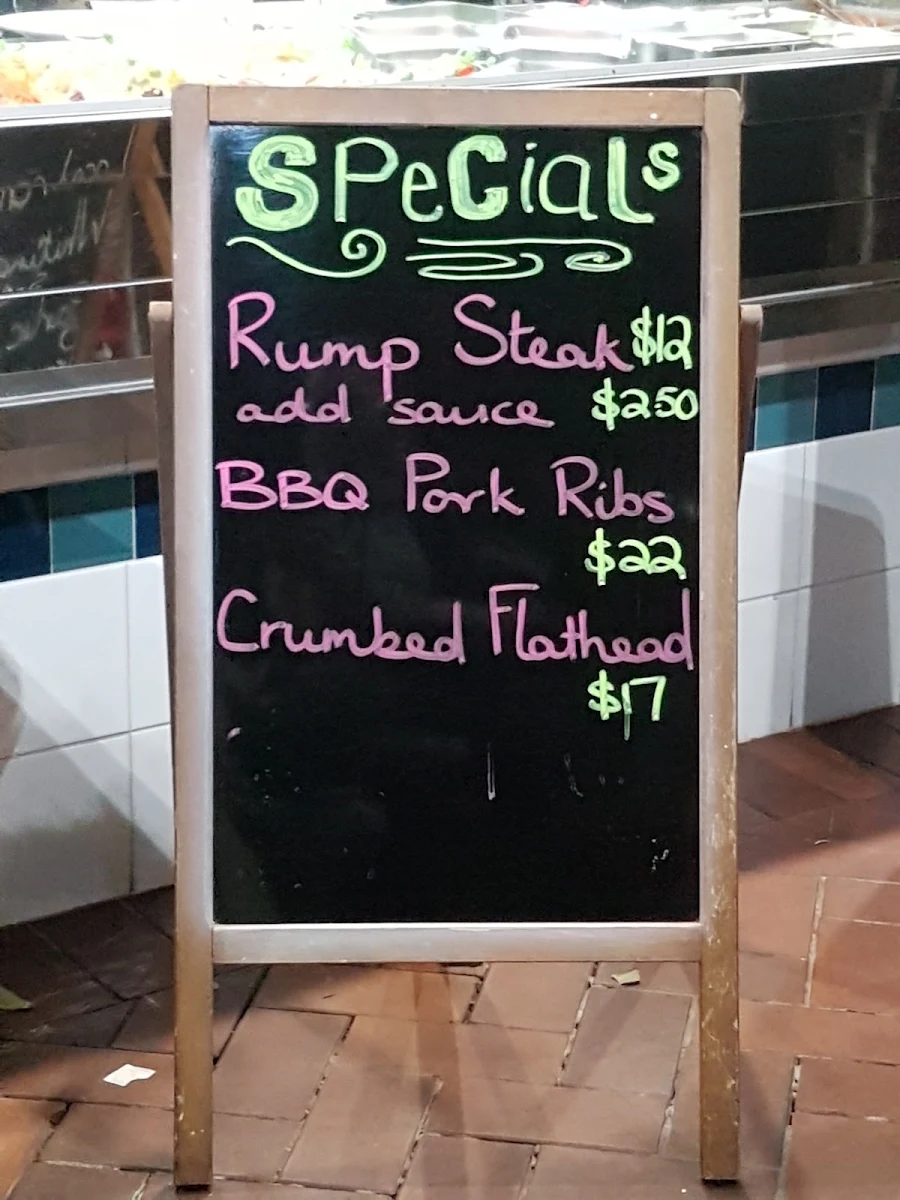 SPeCials
Rump Steak $12
add sauce $2.50
BBQ Pork Ribs
$22
Crumbed Flathead
$17